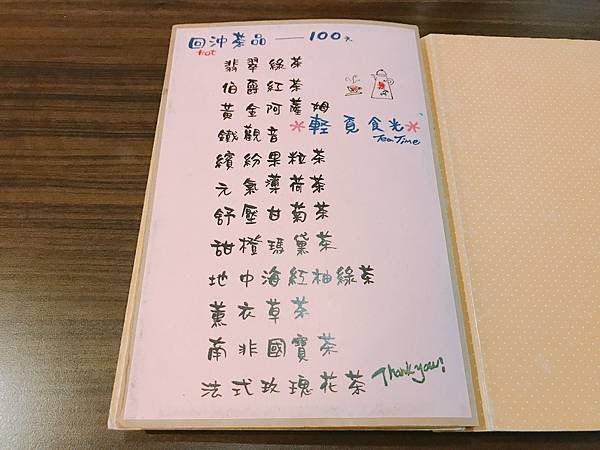 回沖茶品 —— 100元
Hot
翡翠綠茶
伯爵紅茶
黃金阿薩姆
鐵觀音
*輕覓食光*
Tea Time
繽紛果粒茶
元氣薄荷茶
舒壓甘菊茶
甜橙瑪黛茶
地中海紅柚綠茶
薰衣草茶
南非國寶茶
法式玫瑰花茶
Thank you!